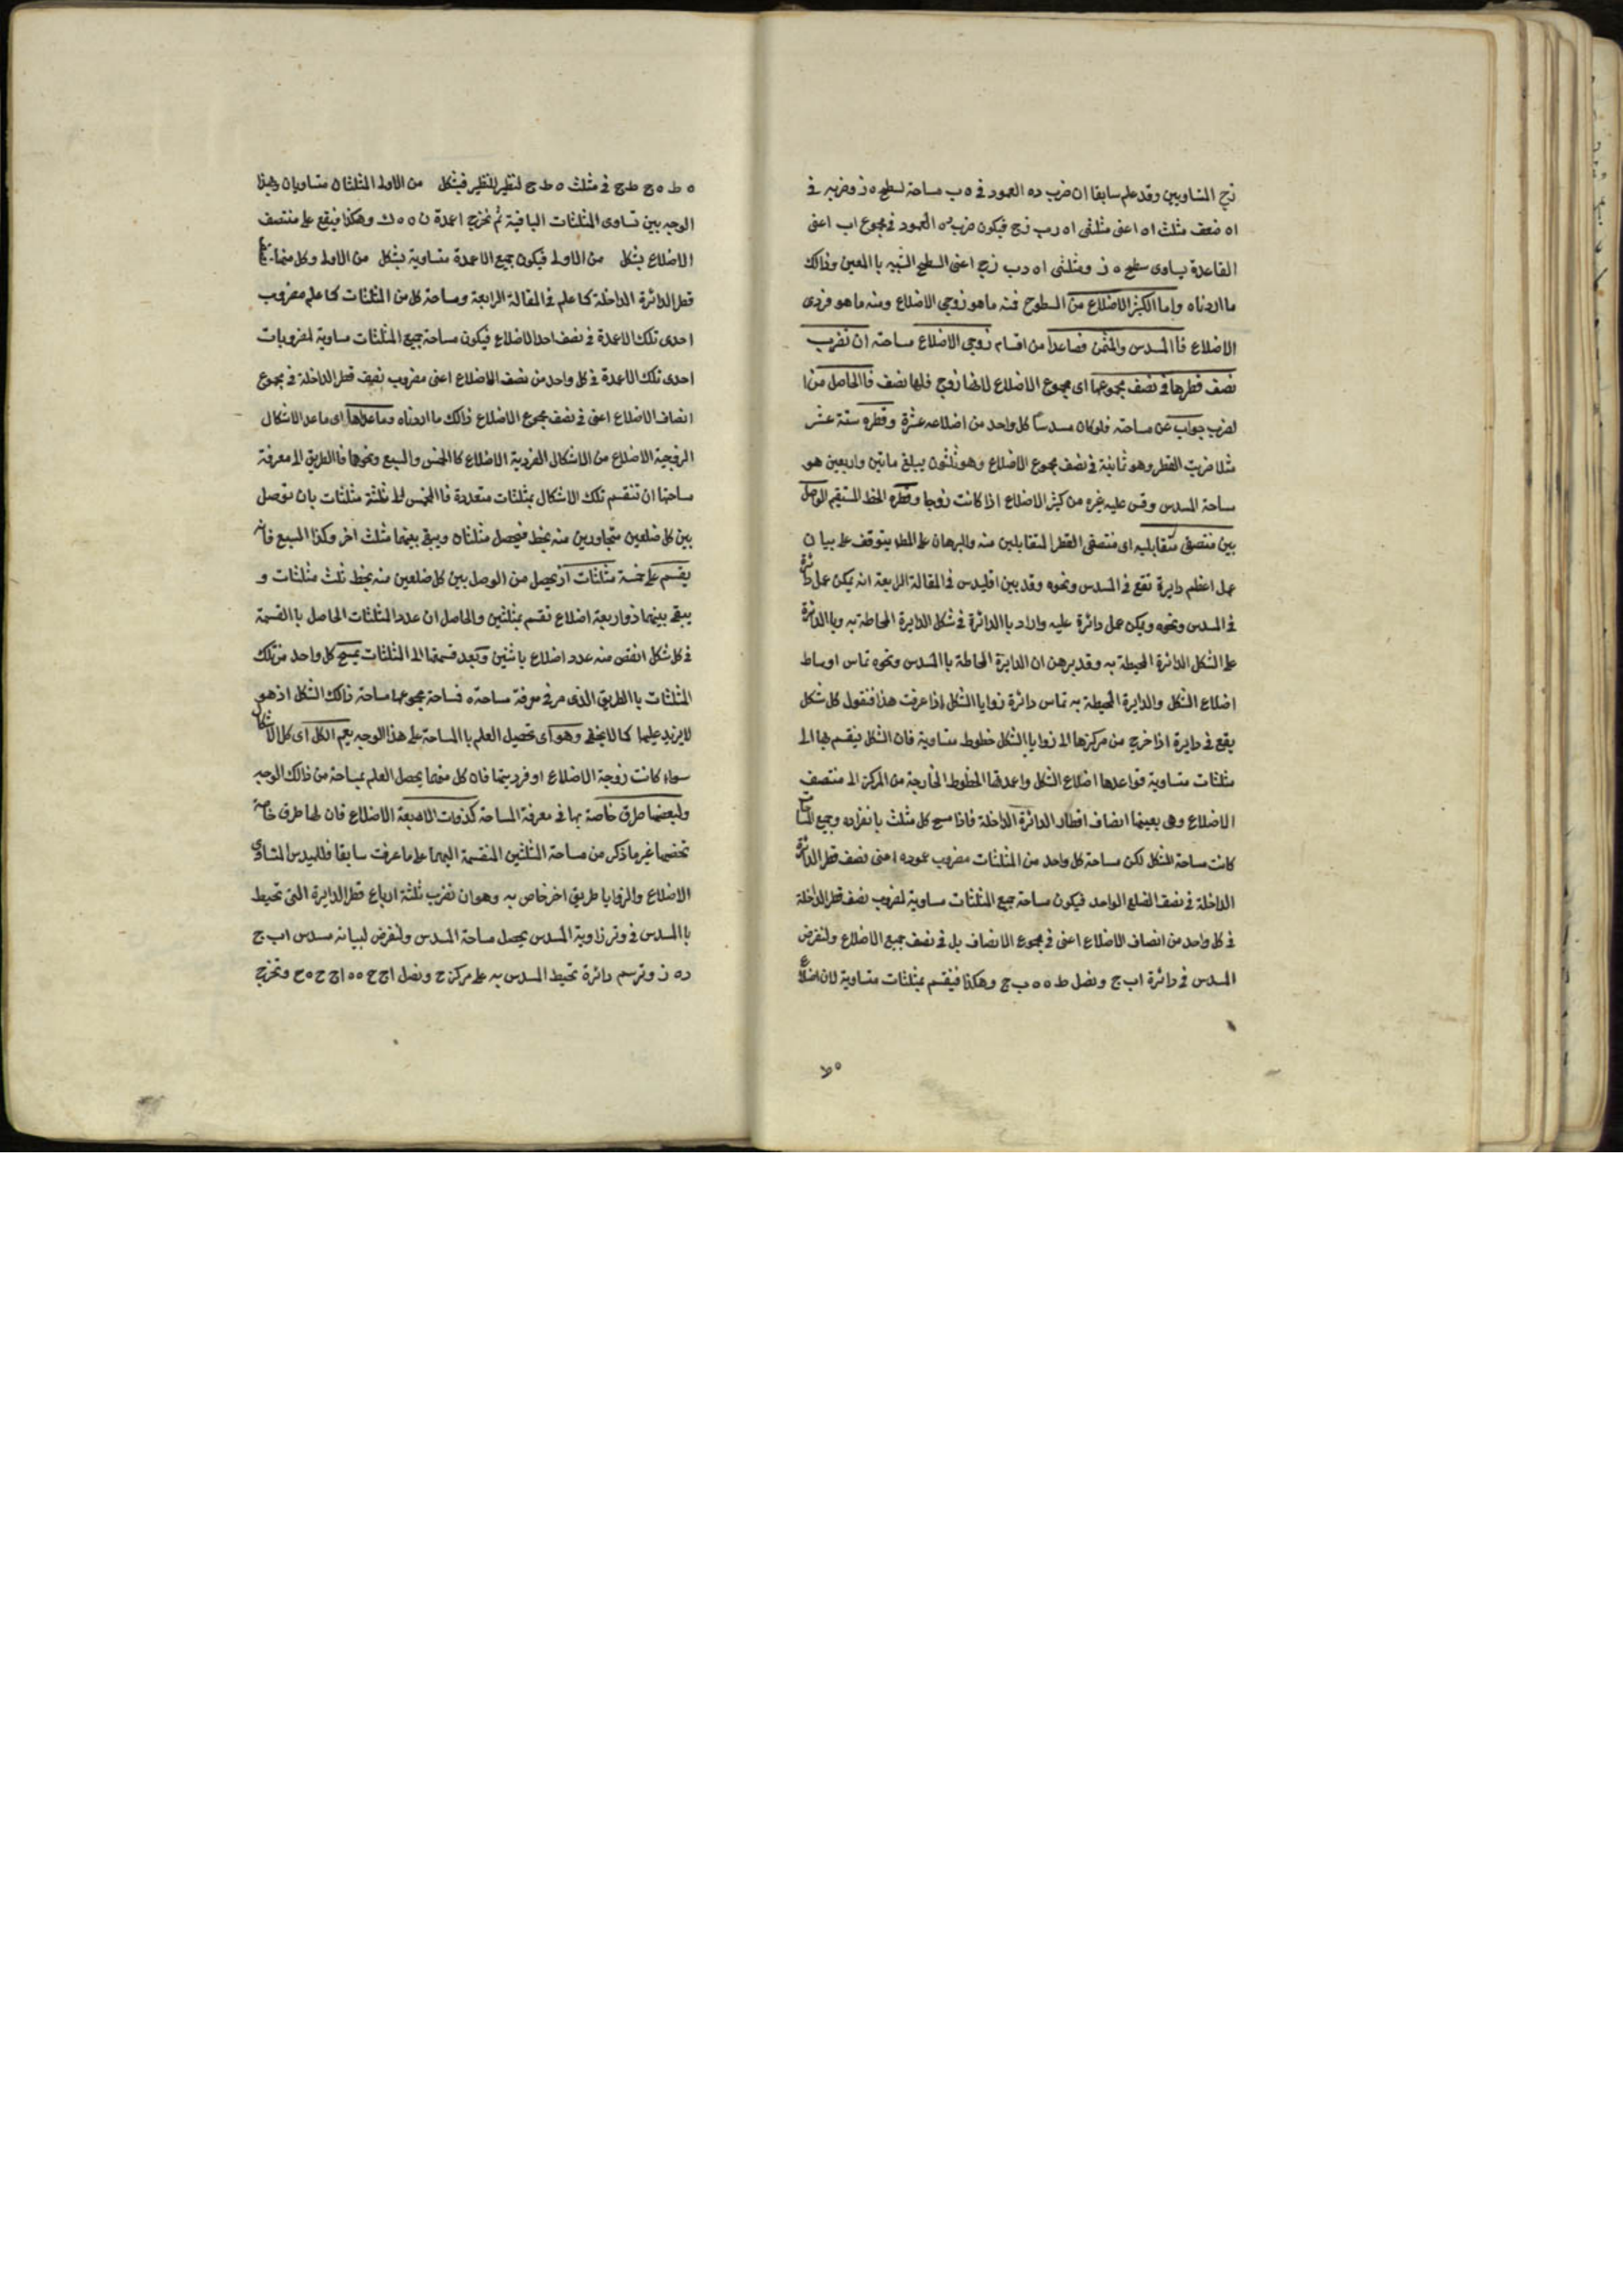 زح المتساويين وقد علم سابقا ان ضرب ده العمود في ه ب مساحة لسطح ه ز وضربه في
اه ضعف مثلث اه اعنى مثلثى اه رب زح فيكون ضرب ده العمود في مجموع اب اعنى
القاعدة يساوى سطح ه ز ومثلثى اه دب زح اعنى السطح الشبيه باالمعين وذالك
ما اردناه واما الكثير الاضلاع من السطوح فمنه ما هو زوجى الاضلاع ومنه ما هو فردى
الاضلاع فاالمسدس والمثمن فصاعدا من اقسام زوجى الاضلاع مساحته ان تضرب
نصف قطرها في نصف مجموعها اى مجموع الاضلاع لانها زوج فلها نصف فاالحاصل من ا
لضرب جواب عن مساحته فلو كان مسدسا كل واحد من اضلاعه عشرة وقطره ستة عشر
مثلا ضربت القطر وهو ثمانية في نصف مجموع الاضلاع وهو ثلثون يبلغ ماتين واربعين هو
مساحة المسدس وقس عليه غيره من كثير الاضلاع اذا كانت زوجا وقطره الخط المستقيم الواصل
بين منتصفى متقابليه اى منتصفى القطر المتقابلين منه والبرهان على المط يتوقف على بيان
عمل اعظم دايرة تقع في المسدس ونحوه وقد بين اقليدس في المقالة الرابعة انه يمكن عمل دائرة
في المسدس ونحوه ويمكن عمل دائرة عليه واراد باالدائرة في شكل الدايرة المحاطة به وباالدائرة
على الشكل الدائرة المحيطة به وقد برهن ان الدايرة المحاطة باالمسدس ونحوه تماس اوساط
اضلاع الشكل والدايرة المحيطة به تماس دائرة زوايا الشكل اذا عرفت هذا فنقول كل شكل
يقع في دايرة اذا خرج من مركزها الى زوايا الشكل خطوط متساوية فان الشكل ينقسم بها الى
مثلثات متساوية قواعدها اضلاع الشكل واعمدتها الخطوط الخارجة من المركز الى منتصف
الاضلاع وهى بعينها انصاف اقطار الدائرة الداخلة فاذا مسح كل مثلث بانفراده وجمع
كانت مساحة للشكل لكن مساحة كل واحد من المثلثات مضروب عموده اعنى نصف قطر الدائرة
الداخلة في نصف الضلع الواحد فيكون مساحة جميع المثلثات مساوية لمضروب نصف قطر الداخلة
في كل واحد من انصاف الاضلاع اعنى في مجموع الانصاف بل في نصف جميع الاضلاع ولنفرض
المسدس في دائرة اب ج ونصل ط ه ه ب ج وهكذا فينقسم بمثلثات متساوية لان اضلاع
ه ط ه ج ط ج في مثلث ه ط ج لنظير للنظير فبشكل من الاولى المثلثان متساويان وبهذا
الوجه يبين تساوى المثلثات الباقية ثم نخرج اعمدة ن ه ه ك وهكذا فيقع على منتصف
الاضلاع بشكل من الاولى فيكون جميع الاعمدة متساوية بشكل من الاولى وكل منها
قطر الدائرة الداخلة كما علم في المقالة الرابعة ومساحة كل من المثلثات كما علم مضروب
احدى تلك الاعمدة في نصف احد الاضلاع فيكون مساحة جميع المثلثات مساوية لمضروبات
احدى تلك الاعمدة في كل واحد من نصف الاضلاع اعنى مضروب نصف قطر الداخلة في مجموع
انصاف الاضلاع اعنى في نصف مجموع الاضلاع ذالك ما اردناه وما عداها اى ما عدا الاشكال
الزوجية الاضلاع من الاشكال الفردية الاضلاع كاالمخمس والمسبع ونحوها فاالطريق الى معرفة
مساحتها ان تنقسم تلك الاشكال بمثلثات متعددة فاالمخمس الى ثلثة مثلثات بان توصل
بين كل ضلعين متجاورين منه بخط فيحصل مثلثان ويبقى بينهما مثلث اخر وكذا المسبع فانه
يقسم على خمسة مثلثات اذ يحصل من الوصل بين كل ضلعين منه بخط ثلث مثلثات و
يبقى بينهما ذو اربعة اضلاع تقسم بمثلثين والحاصل ان عدد المثلثات الحاصل باالقسمة
في كل شكل انقص منه عدد اضلاع باثنين وبعد قسمتها الى المثلثات يمسح كل واحد من تلك
المثلثات باالطريق الذى مر في معرفة مساحته فمساحة مجموعها مساحة ذالك الشكل اذ هو
لا يزيد عليها كما لا يخفى وهو اى تحصيل العلم باالمساحة على هذا الوجه يعم الكل اى كل الاشكال
سواء كانت زوجية الاضلاع او فرديتها فان كل منها يحصل العلم بمساحة من ذالك الوجه
ولبعضها طرق خاصة بها في معرفة المساحة كذوات الاربعة الاضلاع فان لها طرق خاصة
تخصها غير ما ذكر من مساحة المثلثين المنقسمة اليهما على ما عرفت سابقا فللمسدس المتساوى
الاضلاع والزوايا طريق اخر خاص به وهو ان تضرب ثلثة ارباع قطر الدايرة التى تحيط
باالمسدس في وتر زاوية المسدس يحصل مساحة المسدس ولنفرض لبيانه مسدس اب ج
ده ز ونرسم دائرة تحيط المسدس به على مركز ح ونصل اج ح ه ه اج ح ه ح ونخرج